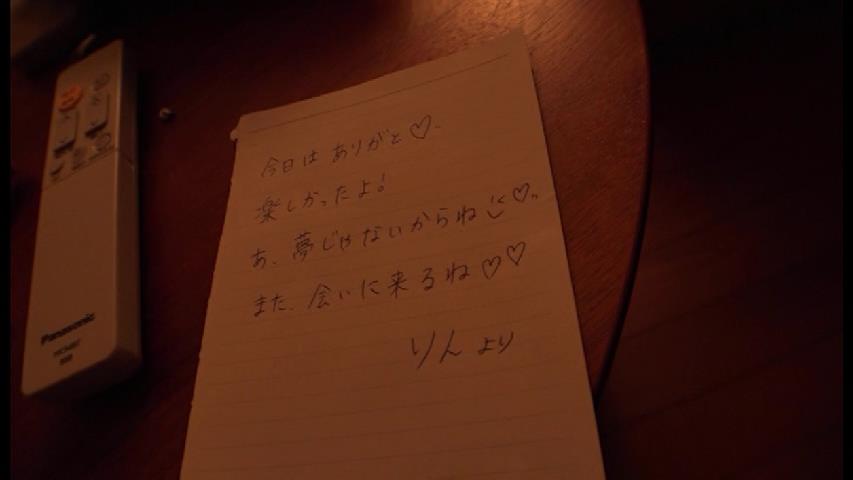 今日は ありがと♡.
楽しかったよ!
あ、夢じゃないからね♡..
また、会いに来るね♡♡
りん より
Panasonic